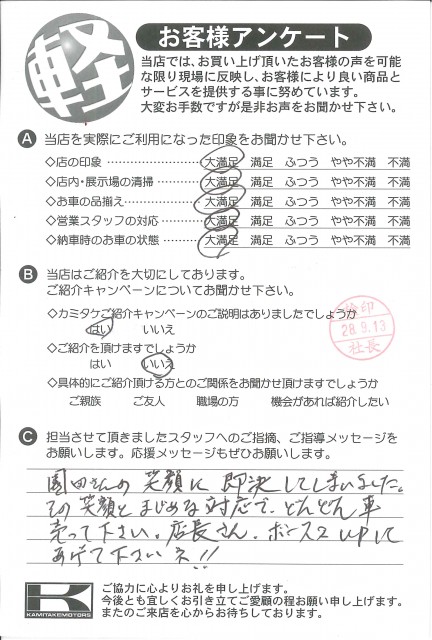 軽
お客様アンケート
当店では、お買い上げ頂いたお客様の声を可能
な限り現場に反映し、お客様により良い商品と
サービスを提供する事に努めています。
大変お手数ですが是非お声をお聞かせ下さい。
A 当店を実際にご利用になった印象をお聞かせ下さい。
◇店の印象 大満足 満足 ふつう やや不満 不満
◇店内・展示場の清掃 大満足 満足 ふつう やや不満 不満
◇お車の品揃え 大満足 満足 ふつう やや不満 不満
◇営業スタッフの対応 大満足 満足 ふつう やや不満 不満
◇納車時のお車の状態 大満足 満足 ふつう やや不満 不満
B 当店はご紹介を大切にしております。
ご紹介キャンペーンについてお聞かせ下さい。
◇カミタケご紹介キャンペーンのご説明はありましたでしょうか
はい いいえ
検印
28.9.13
社長
◇ご紹介を頂けますでしょうか
はい いいえ
◇具体的にご紹介頂ける方とのご関係をお聞かせ頂けますでしょうか
ご親族 ご友人 職場の方 機会があれば紹介したい
C 担当させて頂きましたスタッフへのご指摘、ご指導メッセージを
お願いします。応援メッセージもぜひお願いします。
園田さんの笑顔に即決してしまいました。
その笑顔とまじめな対応で、どんどん車
売って下さい。店長さん、ボーナスUPして
あげて下さいネ!!
K
KAMITAKEMOTORS
ご協力に心よりお礼を申し上げます。
今後とも宜しくお引き立てご愛顧の程お願い申し上げます。
またのご来店を心からお待ちしております。